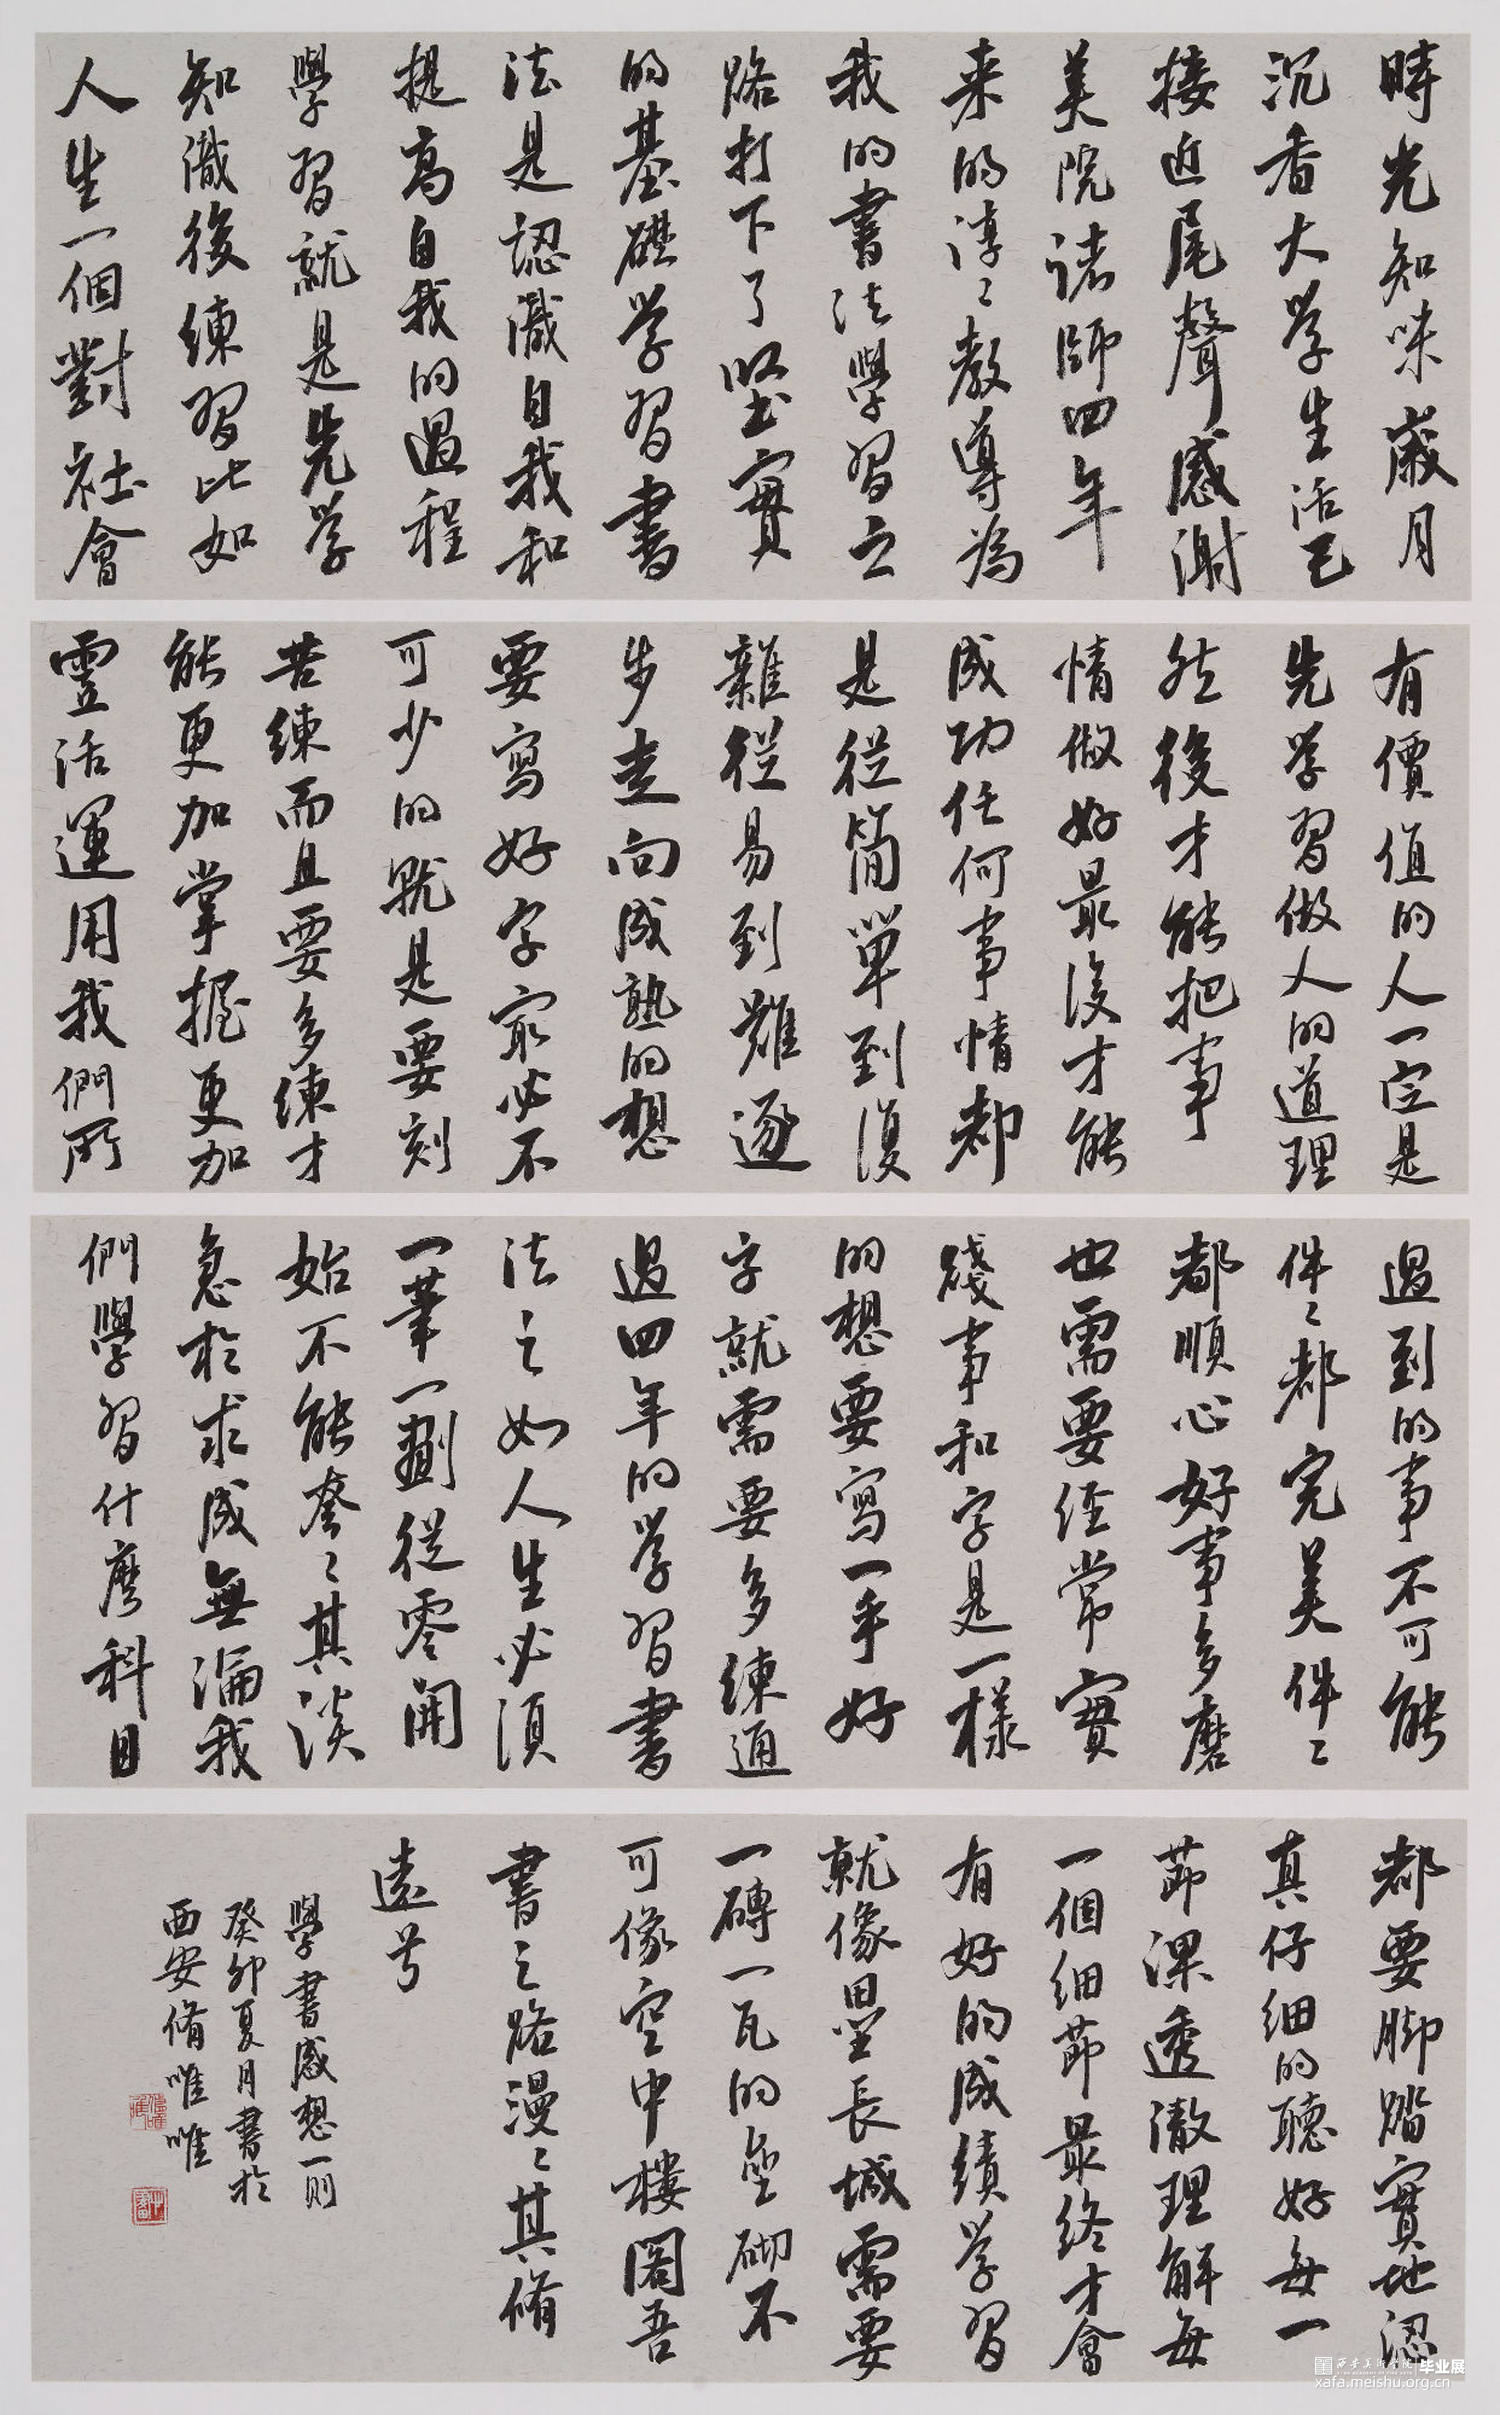 時光知味歲月
沉香大学生活已
接近尾聲感謝
美院诸師四年
来的諄々教導為
我的書法學習之
路打下了堅實
的基礎学習書
法是認識自我和
提高自我的過程
學習就是先学
知識後練習比如
人生一個對社會
有價值的人一定是
先学習做人的道理
然後才能把事
情做好最後才能
成功任何事情都
是從簡單到復
雜從易到難逐
步走向成熟的想
要寫好字最必不
可少的就是要刻
苦練而且要多練才
能更加掌握更加
靈活運用我們所
遇到的事不可能
件々都完美件々
都順心好事多磨
也需要经常實
踐事和字是一樣
的想要寫一手好
字就需要多練通
過四年的学習書
法之如人生必須
一筆一劃從零開
始不能夸々其談
急於求成無論我
們學習什麼科目
都要脚踏實地認
真仔細的聽好每一
節課透澈理解每
一個細節最终才會
有好的成績学習
就像壘長城需要
一磚一瓦的壘砌不
可像空中樓閣吾
書之路漫々其脩
遠兮
學書感想一則
癸卯夏月書於
西安脩唯唯
西安美術學院 毕业展
xafa.meishu.org.cn